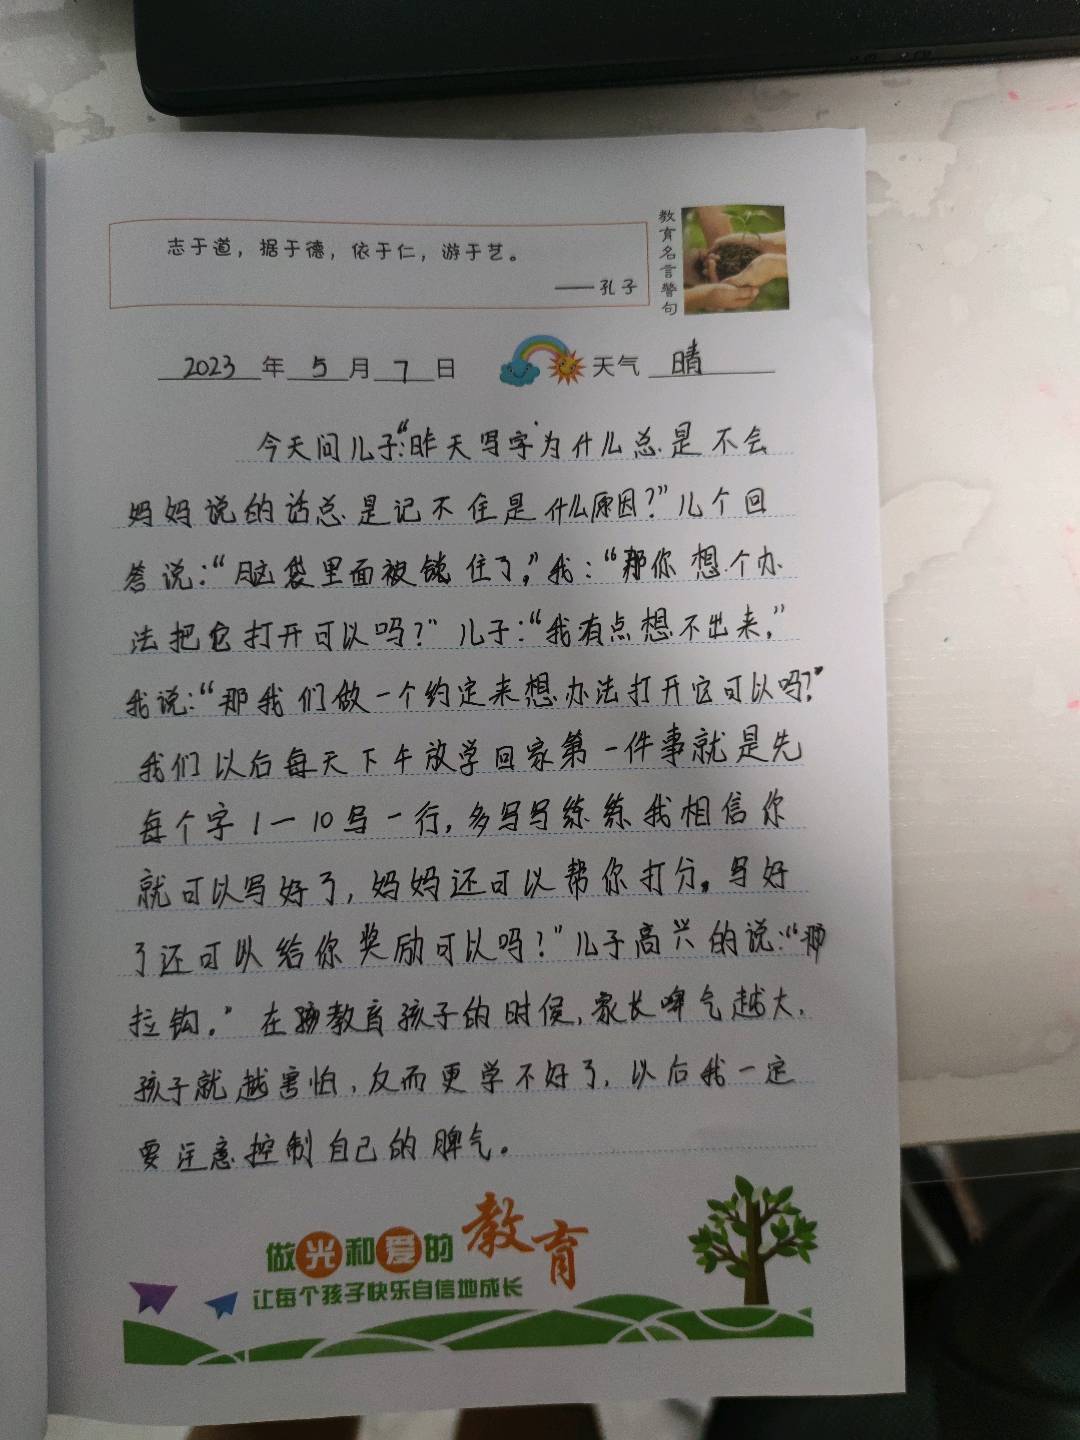 志于道，据于德，依于仁，游于艺。
——孔子
教育名言警句
2023年5月7日 天气 晴
今天问儿子:“昨天写字为什么总是不会
妈妈说的话总是记不住是什么原因?”儿个回
答说:“脑袋里面被锁住了,”我:“那你想个办
法把它打开可以吗?”儿子:“我有点想不出来,”
我说:“那我们做一个约定来想办法打开它可以吗?”
我们以后每天下午放学回家第一件事就是先
每个字1一10写一行,多写写练练我相信你
就可以写好了,妈妈还可以帮你打分。写好
了还可以给你奖励可以吗?”儿子高兴的说:“那
拉钩。”在教育孩子的时候,家长脾气越大,
孩子就越害怕,反而更学不好了,以后我一定
要注意控制自己的脾气。
做光和爱的教育
让每个孩子快乐自信地成长